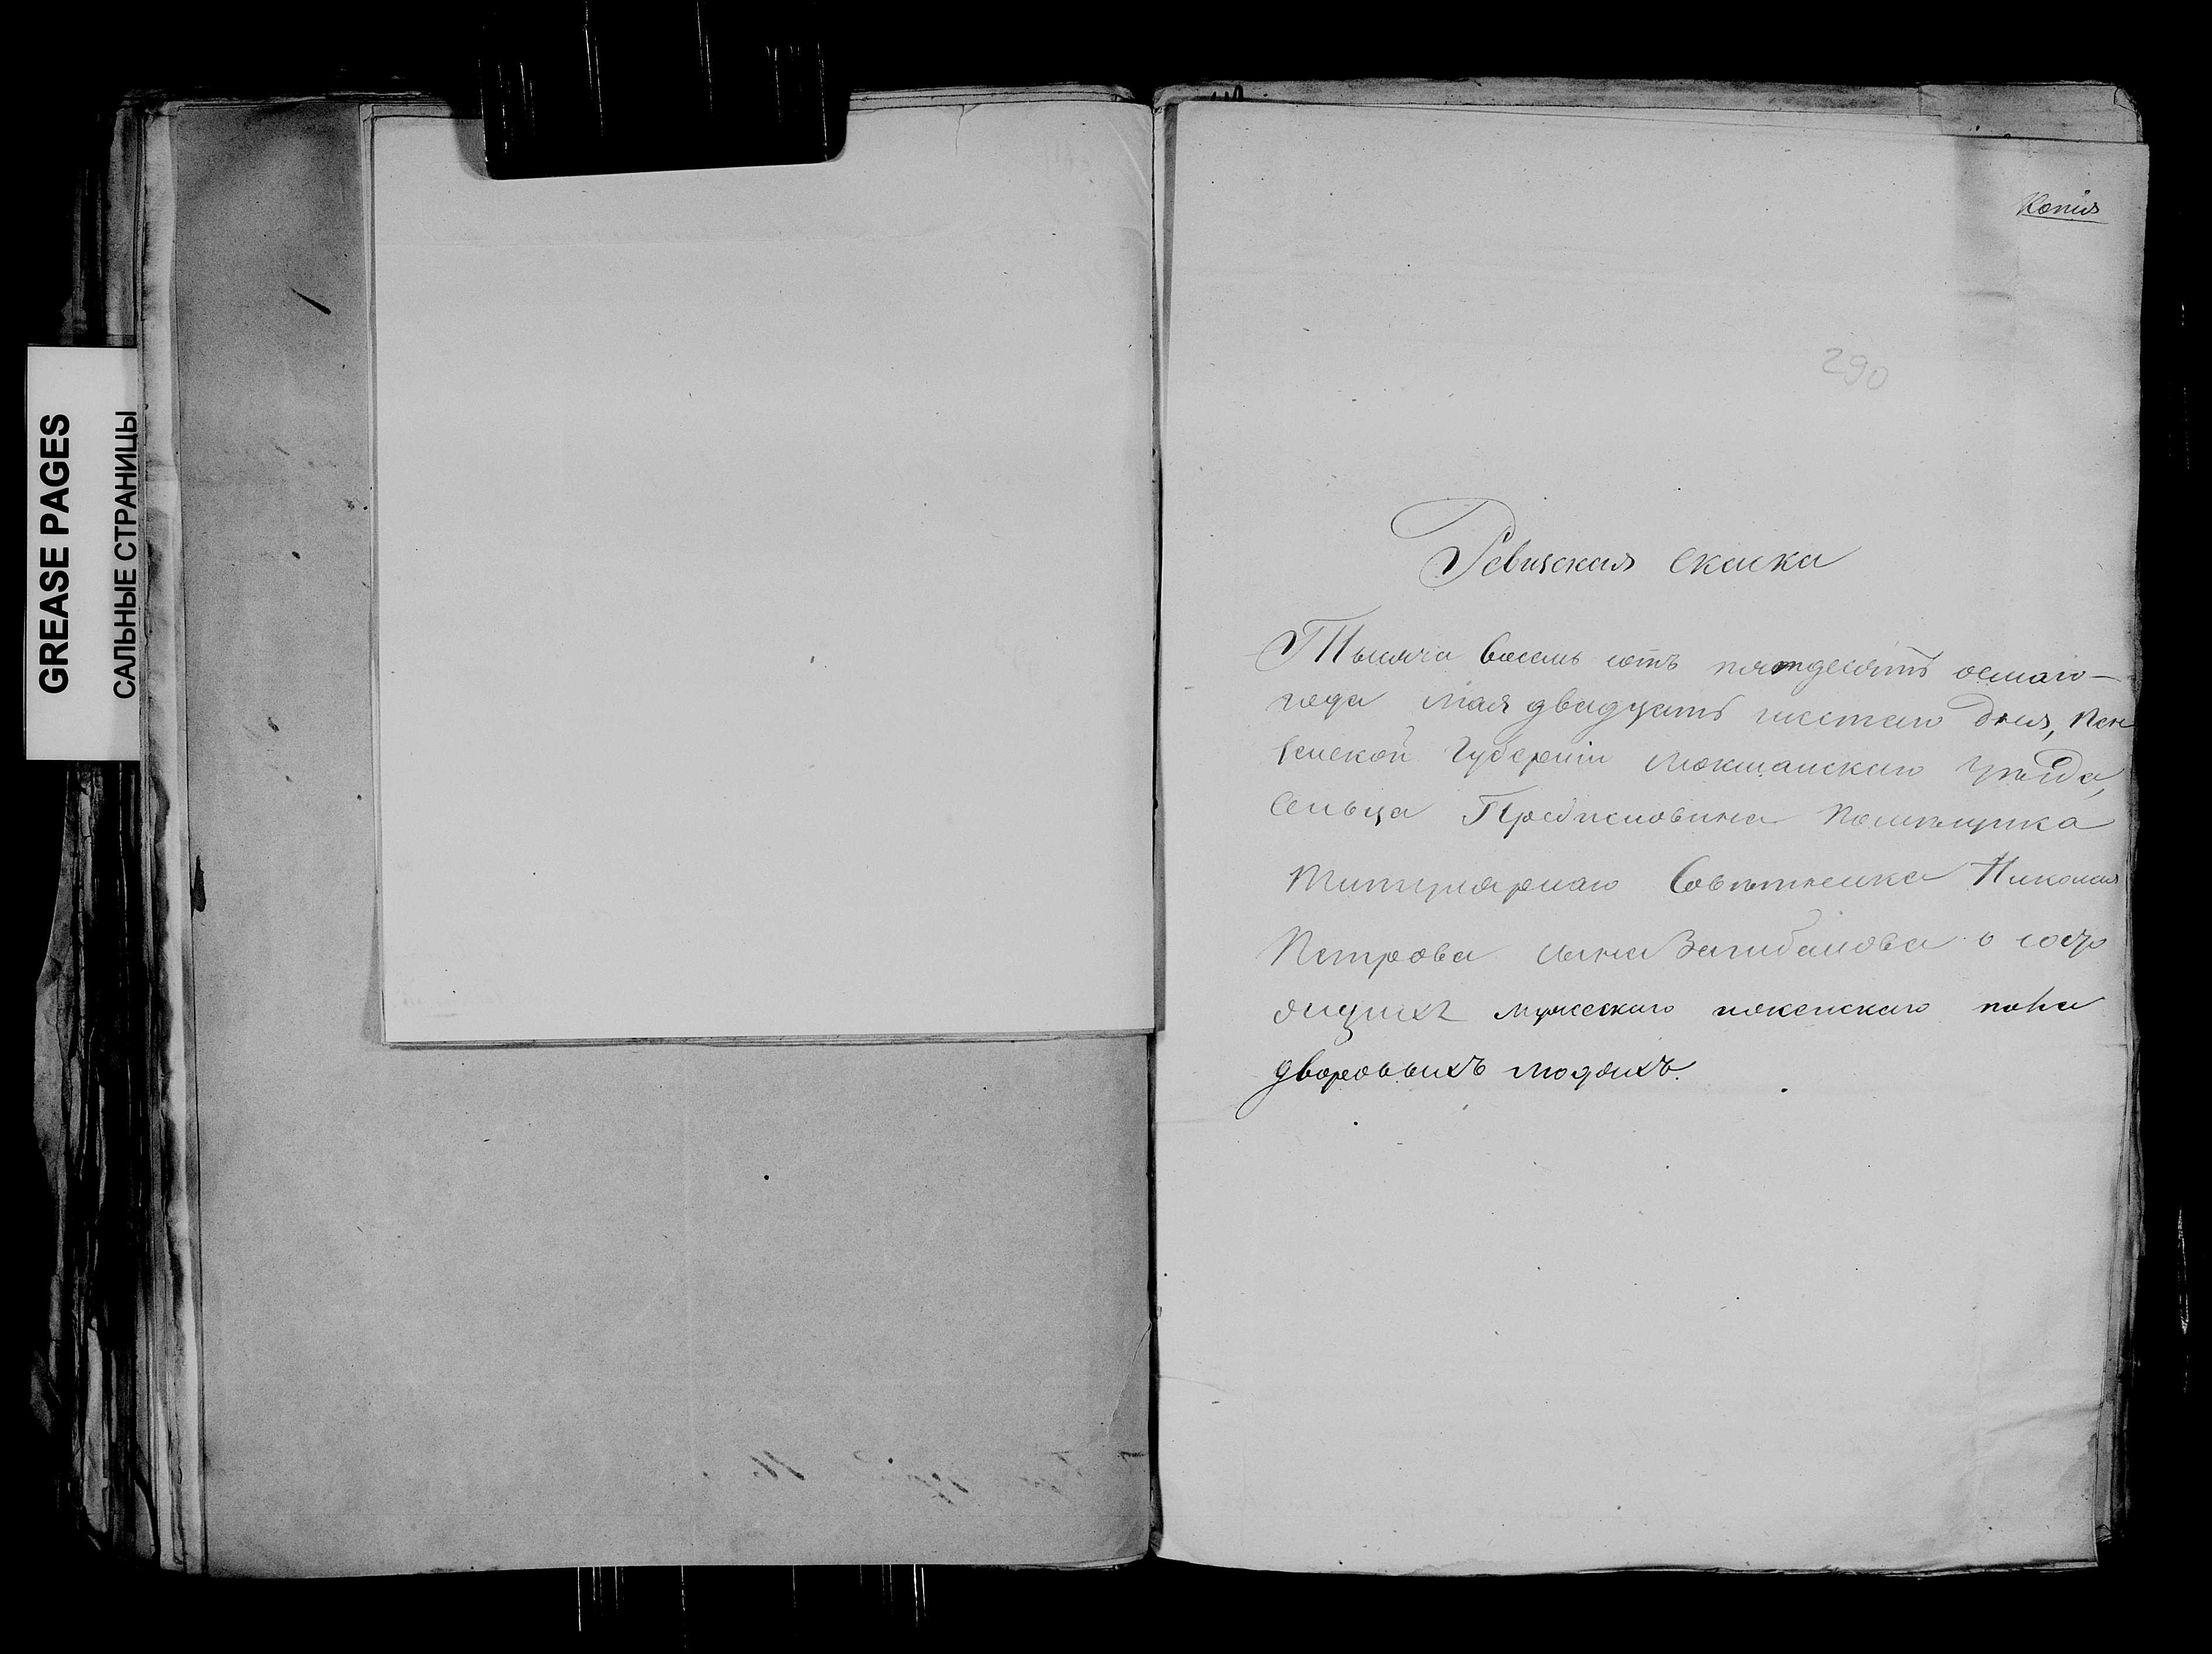 GREASE PAGES
САЛЬНЫЕ СТРАНИЦЫ
Копія
290
Ревизская скаска
Тысяча восемь сотъ пятдесятъ осмаго
года мая двадцать шестаго дня, Пен
зенской Губерніи Мокшанскаго Уѣзда,
Сельца Помѣщика
Титулярнаго Совѣтника Николая
Петрова сына Загибалова о состо
ящихъ мужескаго иженскаго пола
дворовыхъ людяхъ.